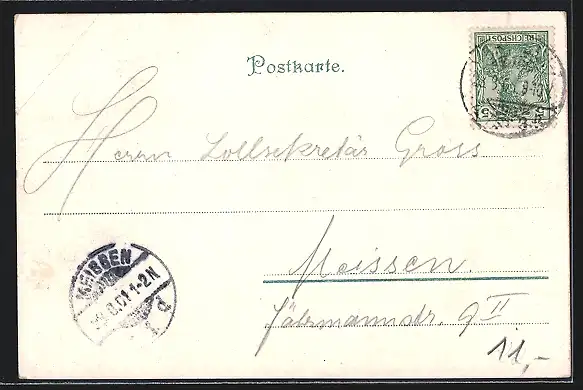 Postkarte.
REICHSPOST
5 5
Herrn Zollsekretär Gross
Meissen.
MEISSEN
1-2N
d
9 II
11,-